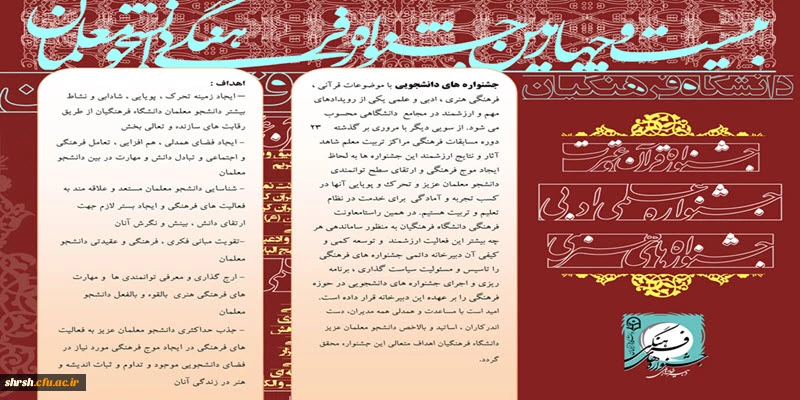 بیست و چهارمین جشنواره فرهنگی دانشجو معلمان
دانشگاه فرهنگیان
جشنواره قرآن و عترت
جشنواره علمی ادبی
جشنواره های هنری
جشنواره های فرهنگی
جشنواره های دانشجویی با موضوعات قرآنی ،
فرهنگی هنری ، ادبی و علمی یکی از رویدادهای
مهم و ارزشمند در مجامع دانشگاهی محسوب
می شود. از سویی دیگر با مروری بر گذشته ۲۳
دوره مسابقات فرهنگی مراکز تربیت معلم شاهد
آثار و نتایج ارزشمند این جشنواره ها به لحاظ
ایجاد موج فرهنگی و ارتقای سطح توانمندی
دانشجو معلمان عزیز و تحرک و پویایی آنها در
کسب تجربه و آمادگی برای خدمت در نظام
تعلیم و تربیت هستیم. در همین راستامعاونت
فرهنگی دانشگاه فرهنگیان به منظور ساماندهی هر
چه بیشتر این فعالیت ارزشمند و توسعه کمی و
کیفی آن دبیرخانه دائمی جشنواره های فرهنگی
را تاسیس و مسئولیت سیاست گذاری ، برنامه
ریزی و اجرای جشنواره های دانشجویی در حوزه
فرهنگی را بر عهده این دبیرخانه قرار داده است.
امید است با مساعدت و همدلی همه مدیران، دست
اندرکاران ، اساتید و بالاخص دانشجو معلمان عزیز
دانشگاه فرهنگیان اهداف متعالی این جشنواره، محقق
گردد.
اهداف :
– ایجاد زمینه تحرک ، پویایی ، شادابی و نشاط
بیشتر دانشجو معلمان دانشگاه فرهنگیان از طریق
رقابت های سازنده و تعالی بخش
- ایجاد فضای همدلی ، هم افزایی ، تعامل فرهنگی
و اجتماعی و تبادل دانش و مهارت در بین دانشجو
معلمان
- شناسایی دانشجو معلمان مستعد و علاقه مند به
فعالیت های فرهنگی و ایجاد بستر لازم جهت
ارتقای دانش ، بینش و نگرش آنان
-تقویت مبانی فکری ، فرهنگی و عقیدتی دانشجو
معلمان
- ارج گذاری و معرفی توانمندی ها و مهارت
های فرهنگی هنری بالقوه و بالفعل دانشجو
معلمان
- جذب حداکثری دانشجو معلمان عزیز به فعالیت
های فرهنگی در ایجاد موج فرهنگی مورد نیاز در
فضای دانشجویی موجود و تداوم و ثبات اندیشه و
هنر در زندگی آنان
shrsh.cfu.ac.ir